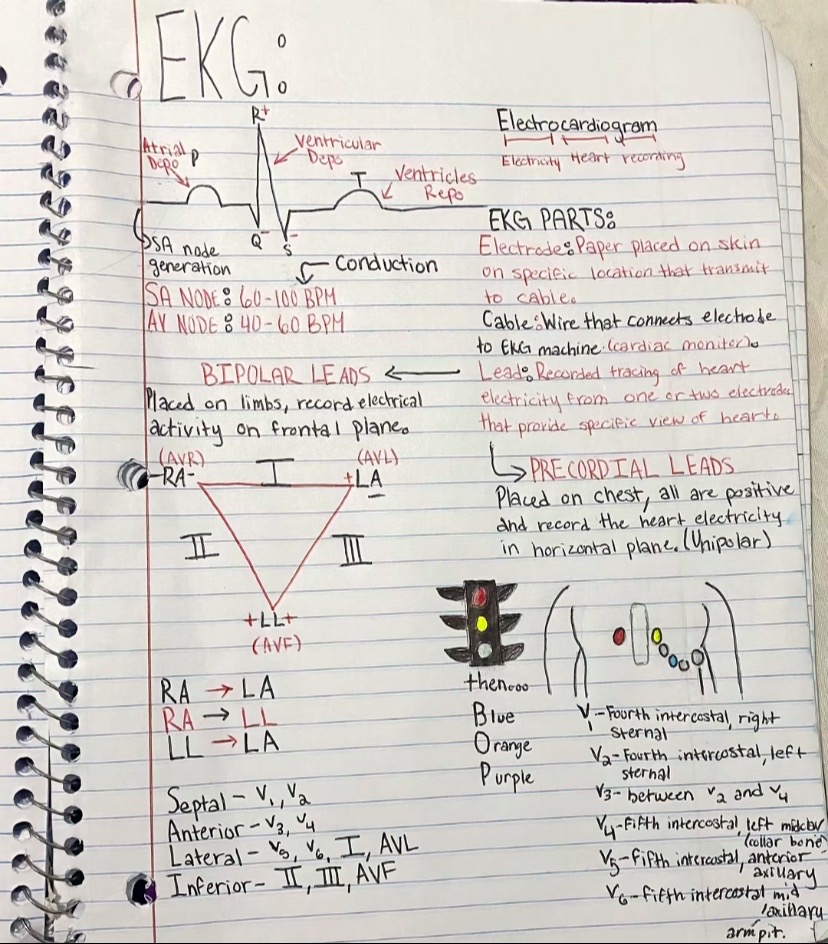 EKG:
R+
Atrial
Depo
P
Ventricular
Depo
T
Ventricles
Repo
Q-
S-
SA node
generation
Conduction
SA NODE: 60-100 BPM
AV NODE: 40-60 BPM
Electrocardiogram
Electricity Heart recording
EKG PARTS:
Electrode: Paper placed on skin
on specific location that transmit
to cable.
Cable: Wire that connects electrode
to EKG machine (cardiac monitor).
Lead: Recorded tracing of heart
electricity from one or two electrodes
that provide specific view of heart.
BIPOLAR LEADS ←
Placed on limbs, record electrical
activity on frontal plane.
(AVR) (AVL)
-RA- I +LA
-
II III
+LL+
(AVF)
RA → LA
RA → LL
LL → LA
Septal - V1, V2
Anterior - V3, V4
Lateral - V5, V6, I, AVL
Inferior - II, III, AVF
PRECORDIAL LEADS
Placed on chest, all are positive
and record the heart electricity
in horizontal plane. (Unipolar)
then...
Blue
Orange
Purple
V1-Fourth intercostal, right
sternal
V2-Fourth intercostal, left
sternal
V3- between V2 and V4
V4-Fifth intercostal, left
(collar bone)
V5-fifth intercostal, anterior
axillary
V6-fifth intercostal mid
axillary
armpit.